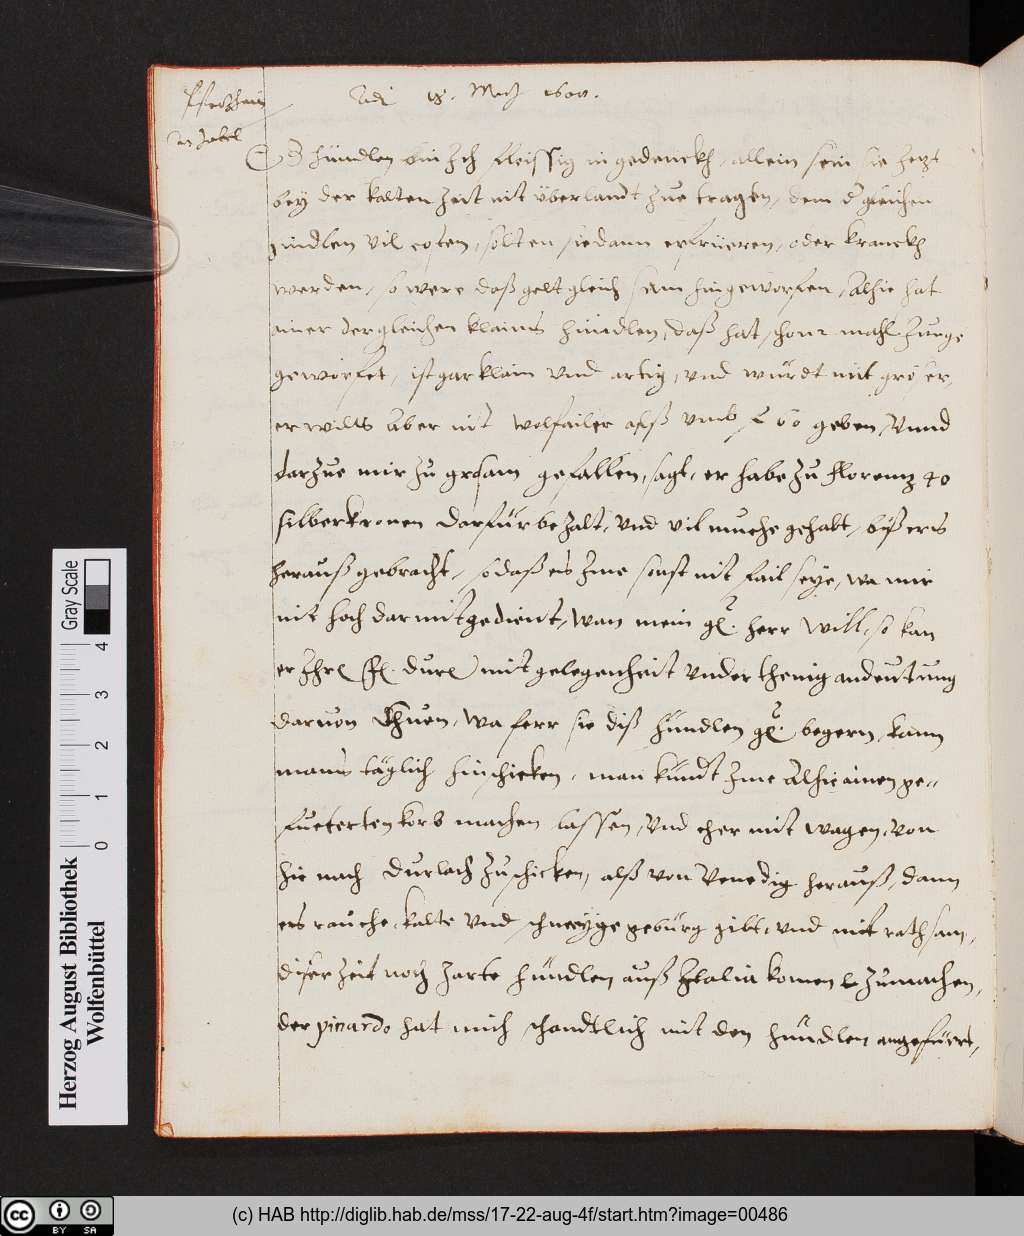 Pfortzhaim
Adi 18. Martz 1600.
Zobel
D hündlen bin Ich fleissig ingedenckh, allein sein sie Jetzt
bey der kalten Zeit nit überlandt Zue tragen, dem d gleichen
hindlen vil costen, solten sie dann erfrüeren, oder kranckh
werden, so were daß gelt gleich sam hingeworfen, Alhie hat
ainer dergleichen klains hündlen, daß hat schonn mahl Junge
geworfet, ist gar klain vnd artig, vnd würdt nit gröser,
er wills Aber nit wolfailer alß vmb 60 geben, Vnnd
darzue mir zu grosam gefallen, sagt, er habe zu Florentz 40
silberkronen darfür bezalt, vnd vil muehe gehabt, biß ers
herauß gebracht, so daß eis Ime sonst nit fail seye, wa mir
nit hoch darmit gedient, wan mein gl. herr will, so kan
er Ihr fl. durl mit gelegenheit vnderthenig andeutung
daruon Thuen, wa ferr sie diß hündlen gl. begern, kann
mans täglich hinschicken, man kündt Ime Alhie ainen ge-
fueterten korb machen lassen, vnd eher mit wagen, von
hie nach Durlach zuschicken, alß von Venedig herauß, dann
es rauche, kalte vnd schneeyge gebürg gibt, vnd nit rathsam,
diser Zeit noch Zarte hündlen auß Italia komen zumachen,
der pinardo hat mich schandtlich mit den hündlen angefüert,
Gray Scale
0 1 2 3 4
Herzog August Bibliothek
Wolfenbüttel
cc BY SA
(c) HAB http://diglib.hab.de/mss/17-22-aug-4f/start.htm?image=00486